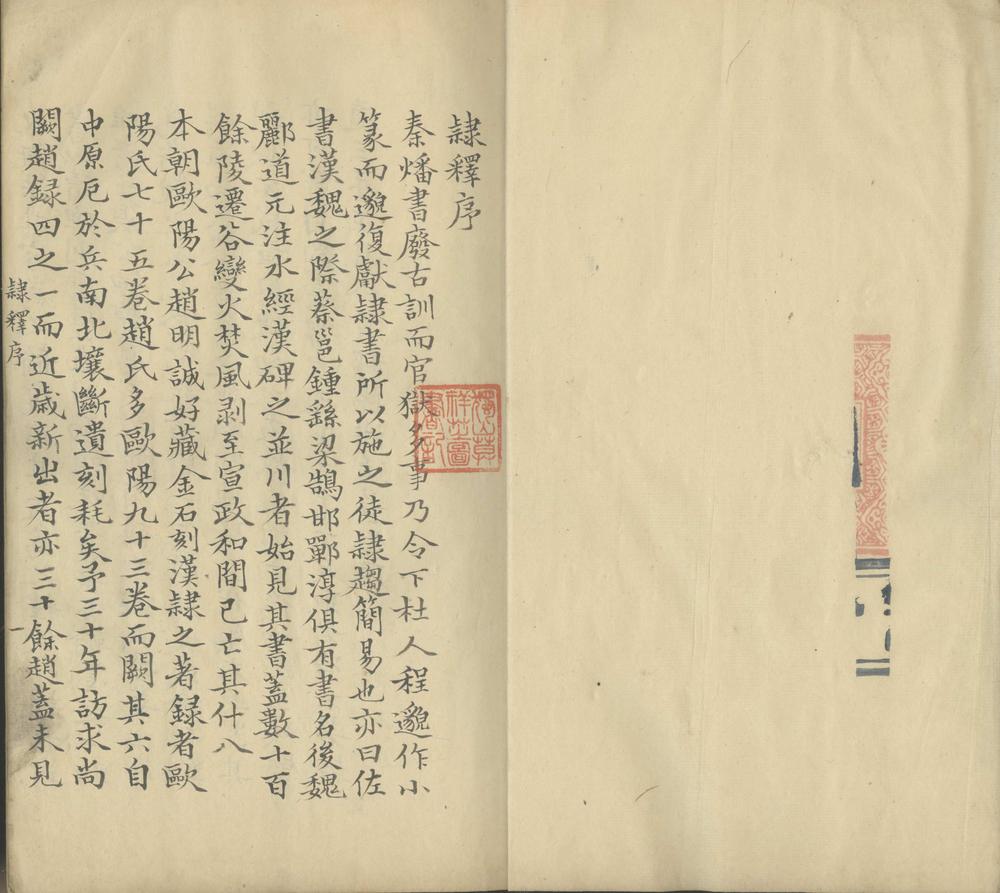 隷釋序
秦燔書廢古訓而官獄多事乃令下杜人程邈作小
篆而邈復獻隷書所以施之徒隷趨簡易也亦曰佐
書漢魏之際蔡邕鍾繇梁鵠邯鄲淳俱有書名後魏
酈道元注水經漢碑之並川者始見其書蓋數十百
餘陵遷谷變火焚風剥至宣政和間已亡其什八
本朝歐陽公趙明誠好藏金石刻漢隷之著録者歐
陽氏七十五卷趙氏多歐陽九十三卷而闕其六自
中原厄於兵南北壤斷遺刻耗矣予三十年訪求尚
闕趙録四之一而近歳新出者亦三十餘趙蓋未見
隷釋序
一